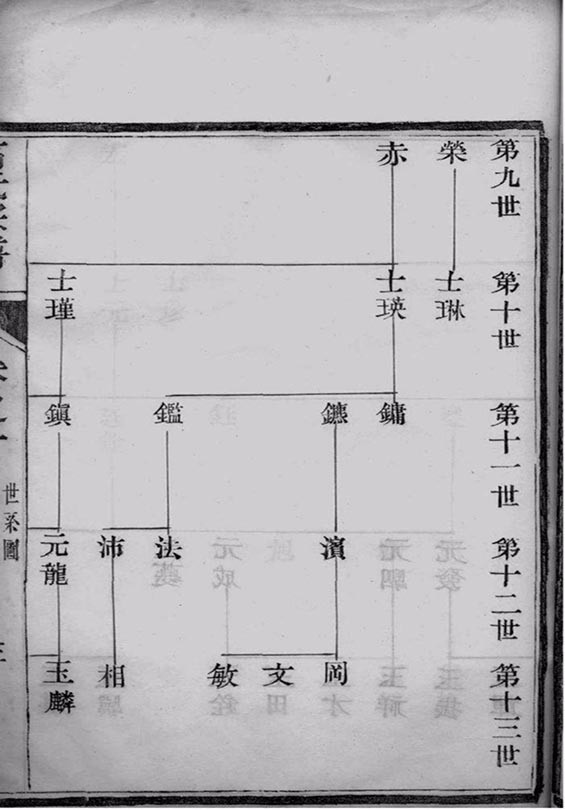 第九世
榮
赤
第十世
士琳
士瑛
士瑾
第十一世
鏞
鑣
鑑
鎭
第十二世
濱
法
沛
元龍
第十三世
岡
文
敏
相
玉麟
世系圖